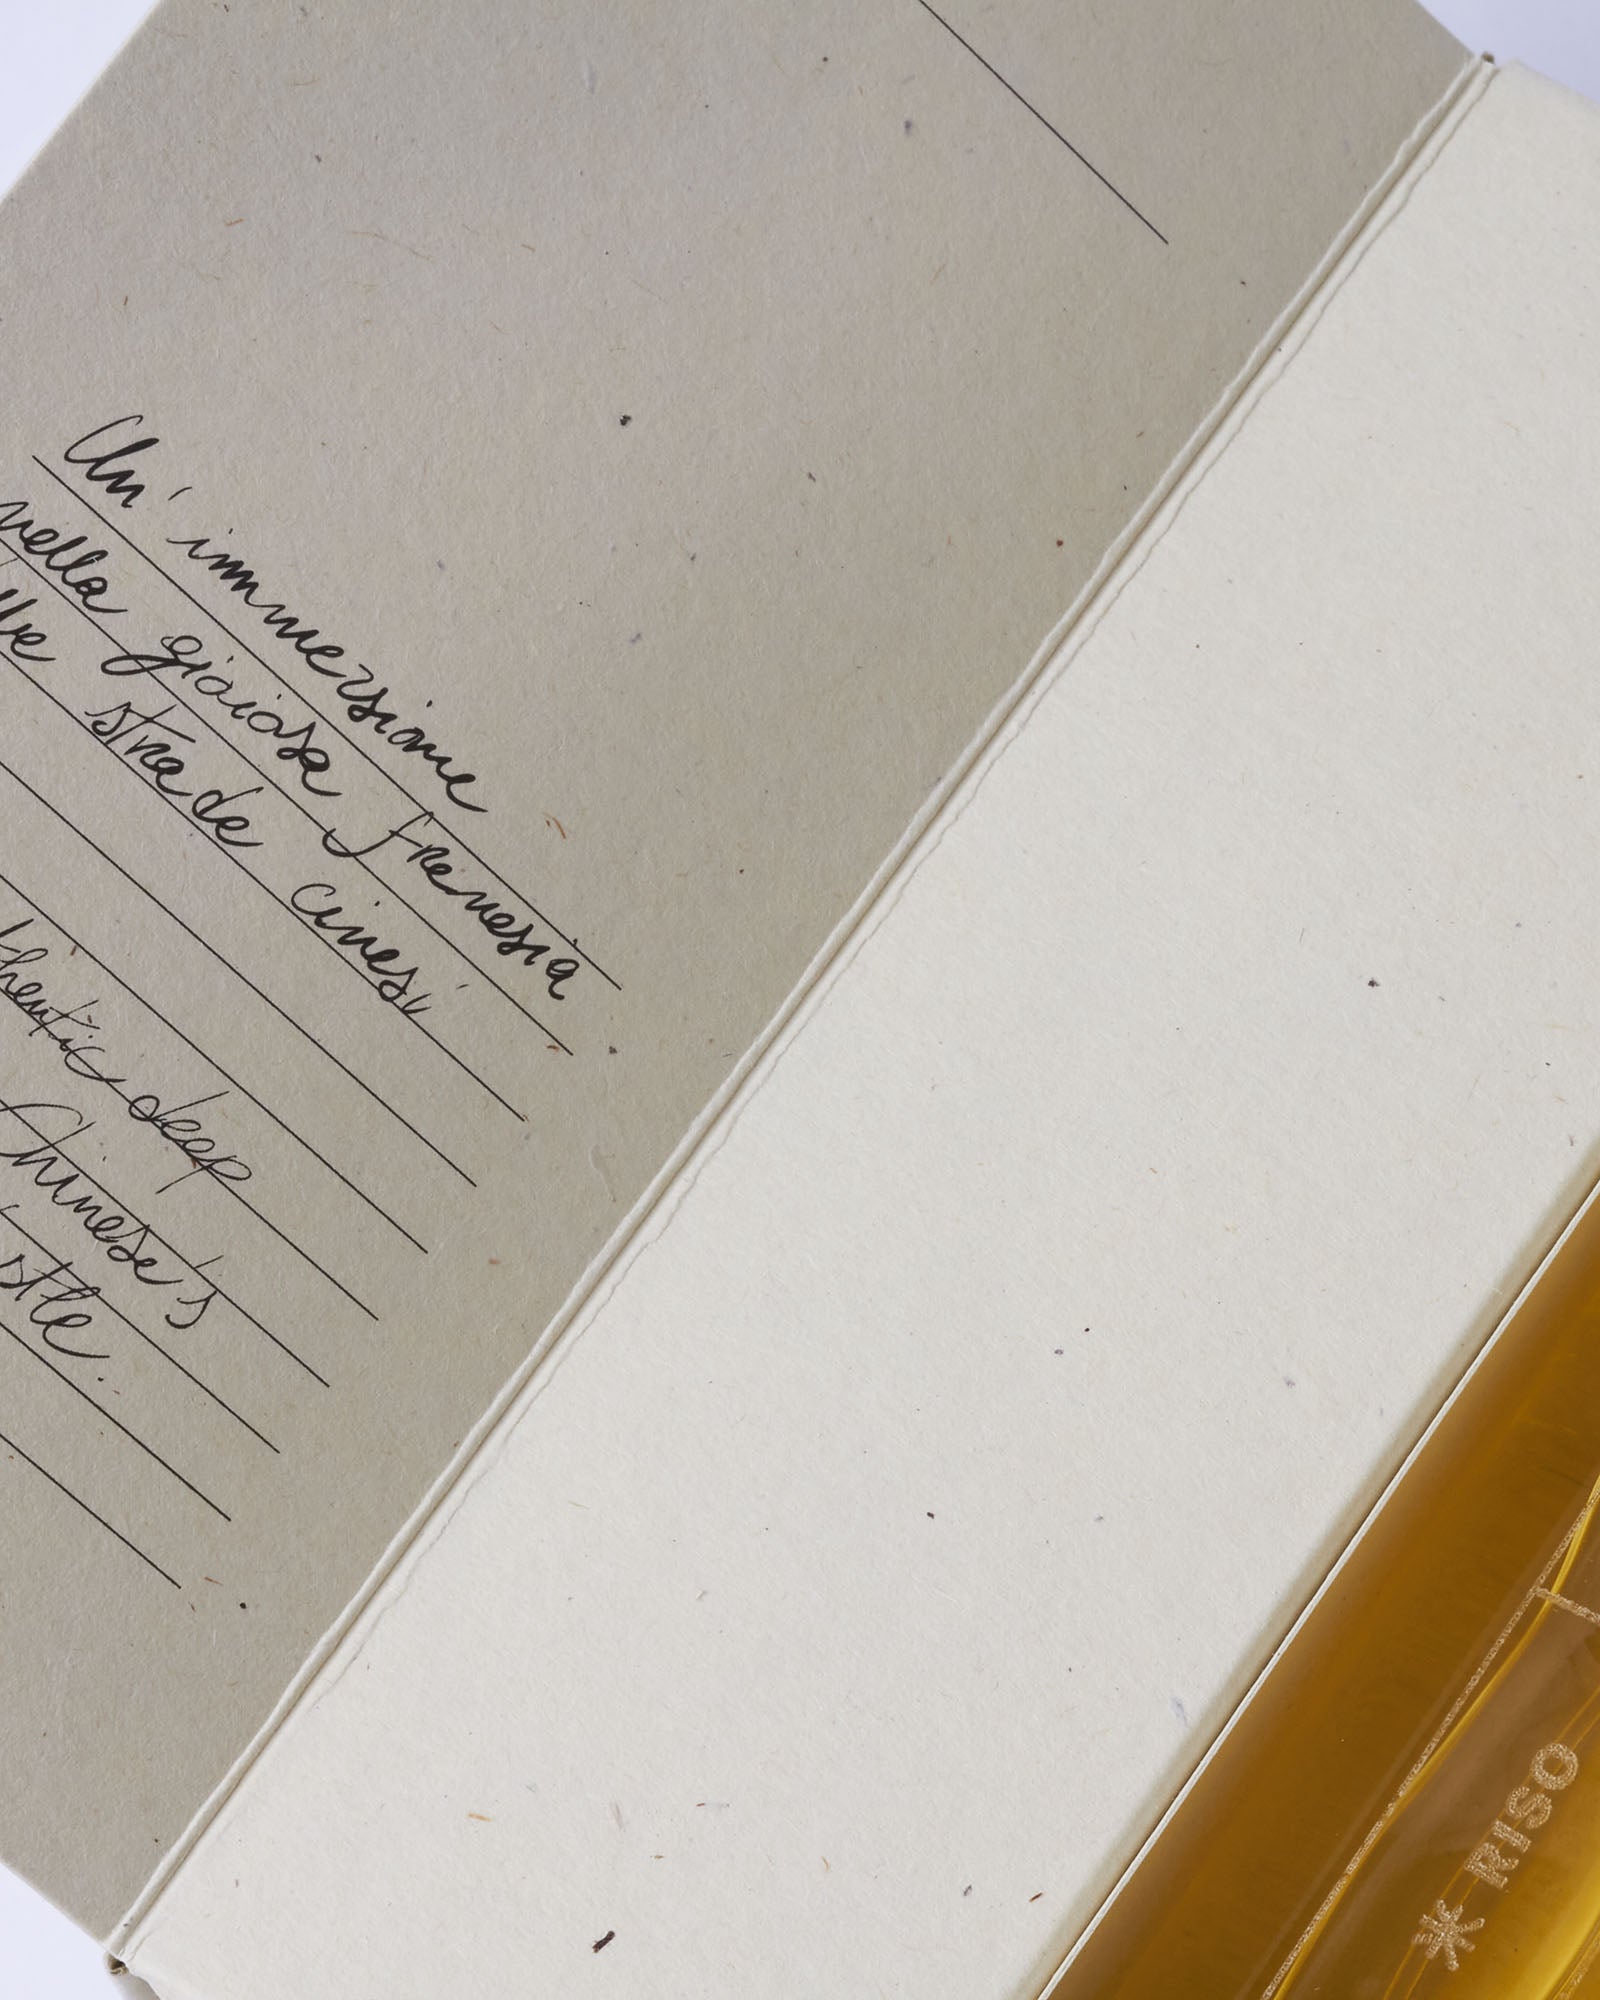 Un' immersione
nella gioiosa frenesia
strade cinesi
deep
Chinese's
米 RISO